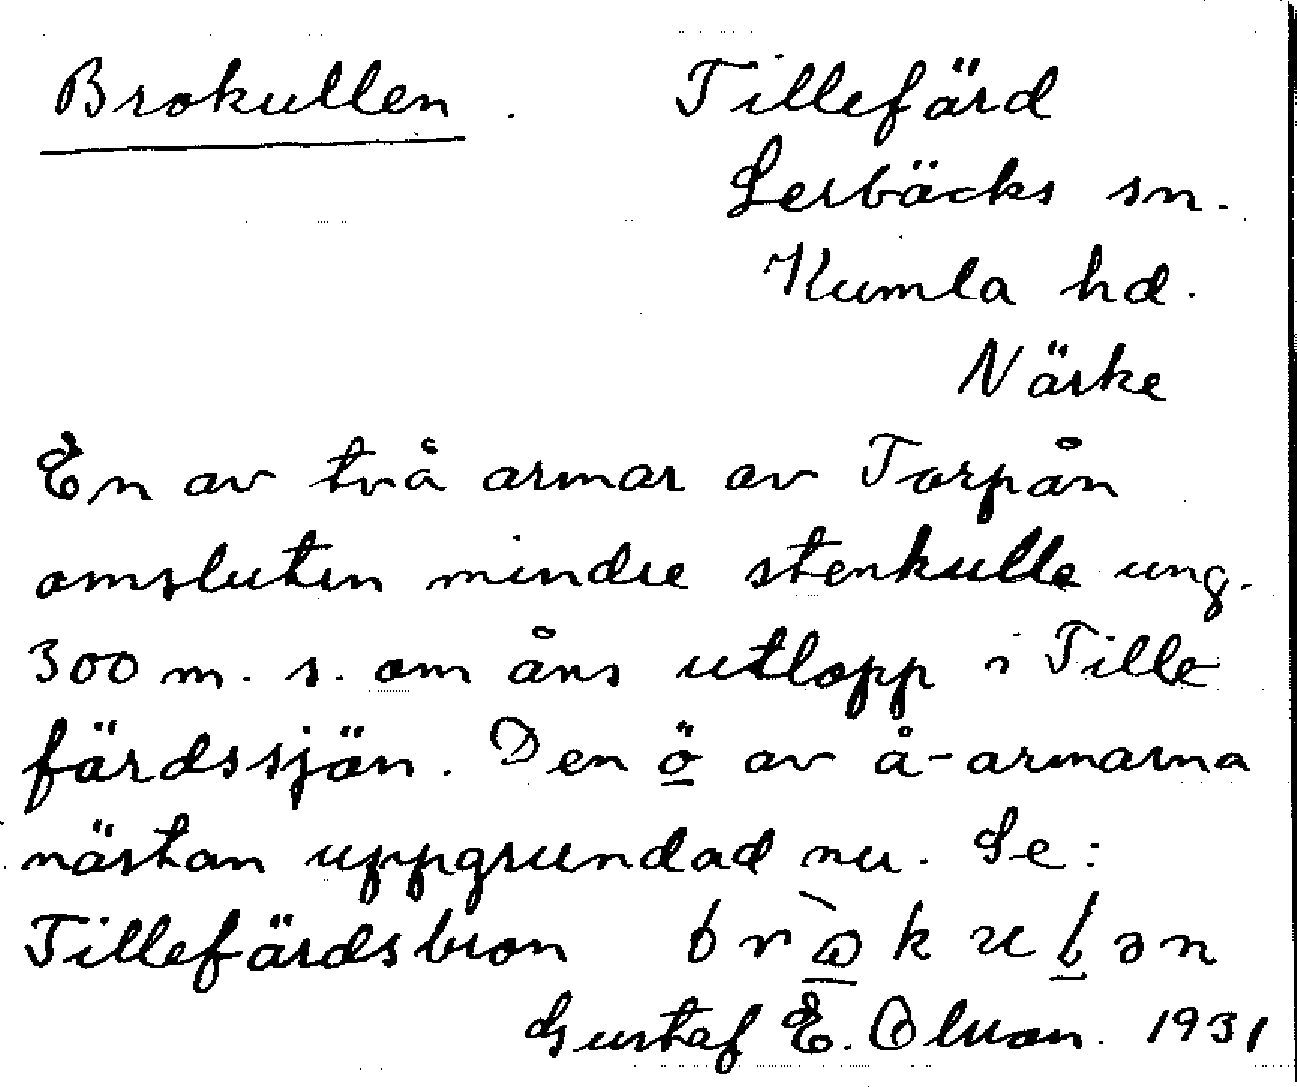 Brokullen. Tillefärd
Lerbäcks sn.
Kumla hd.
Närke
En av två armar av Torpån
omsluten mindre stenkulle ung.
300 m. s. om åns utlopp i Tille
färdssjön. Den ö av å-armarna
nästan uppgrundad nu. Se:
Tillefärdsbron
Gustaf E. Olson. 1931